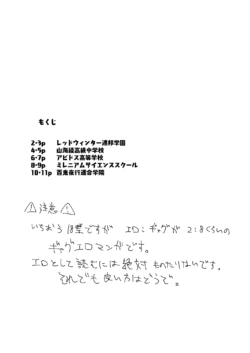 もくじ
2-3p レッドウィンター連邦学園
4-5p 山海経高級中学校
6-7p アビドス高等学校
8-9p ミレニアムサイエンススクール
10-11p 百鬼夜行連合学院
⚠注意⚠
いちおう18禁ですが エロ:ギャグが 2:8くらいの
ギャグエロマンガです。
エロとして読むには絶対ものたりないです。
それでも良い方はどうぞ。